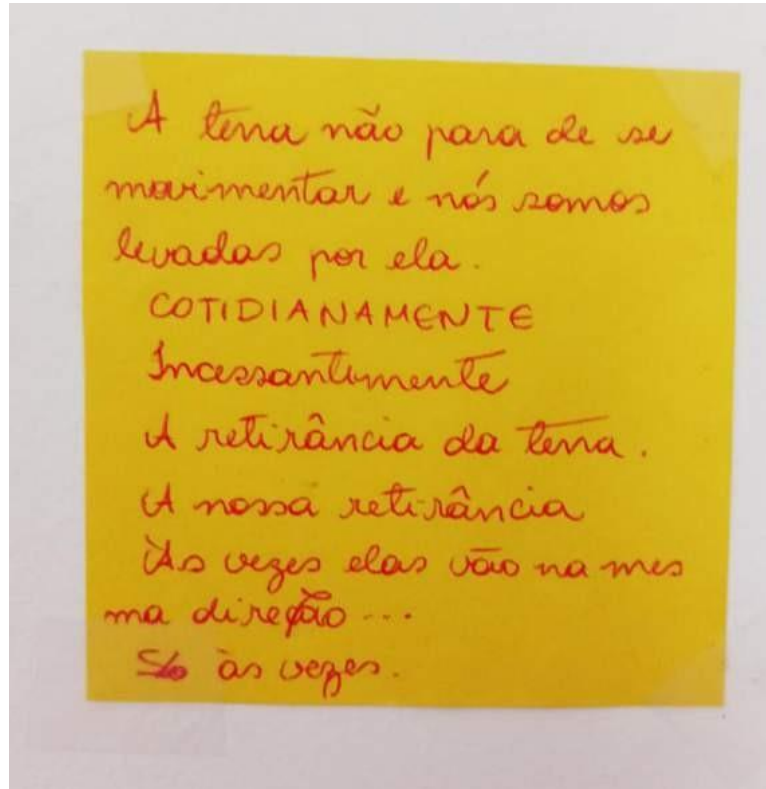 A terra não para de se
movimentar e nós somos
levadas por ela.
COTIDIANAMENTE
Incessantemente
A retirância da terra.
A nossa retirância
Às vezes elas vão na mes
ma direção...
Só às vezes.